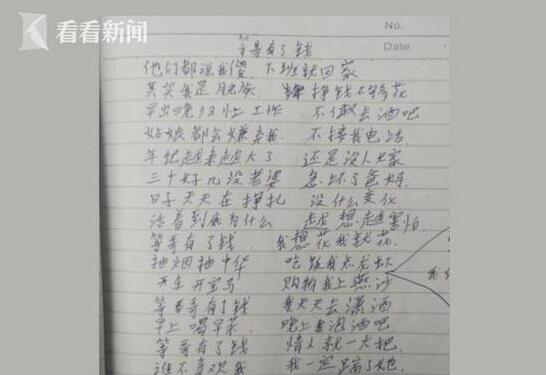 看看新闻
No.
Date
等哥有了钱
他们都说我傻 下班就回家
其实我是月光族 挣钱不够花
早出晚归忙工作 不敢去酒吧
姑娘都会嫌弃我 不接我电话
年纪越来越大了 还是没人嫁
三十好几没老婆 急坏了爸妈
日子天天在挣扎 没什么变化
活着到底为什么 越想越害怕
等哥有了钱 我想花我就花
抽烟抽中华 吃饭我点龙虾
开车开宝马 购物我上燕沙
等哥有了钱 我天天去潇洒
早上喝早茶 晚上去泡酒吧
等哥有了钱 情人就一大把
谁不喜欢我 我一定踹了她